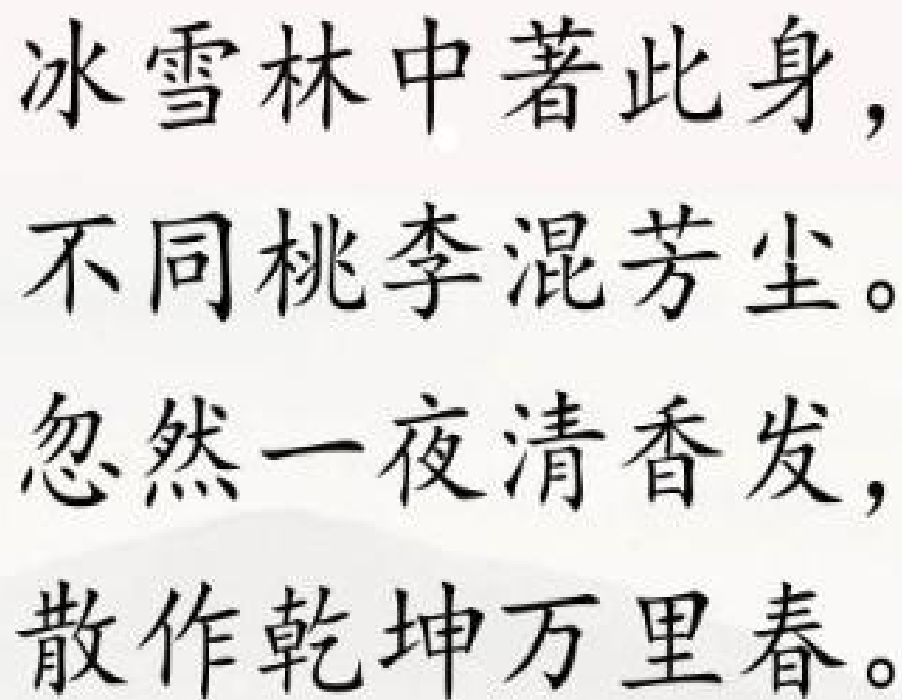 冰雪林中著此身，
不同桃李混芳尘。
忽然一夜清香发，
散作乾坤万里春。